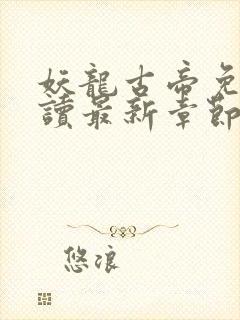 妖龍古帝免
讀最新章節
悠浪